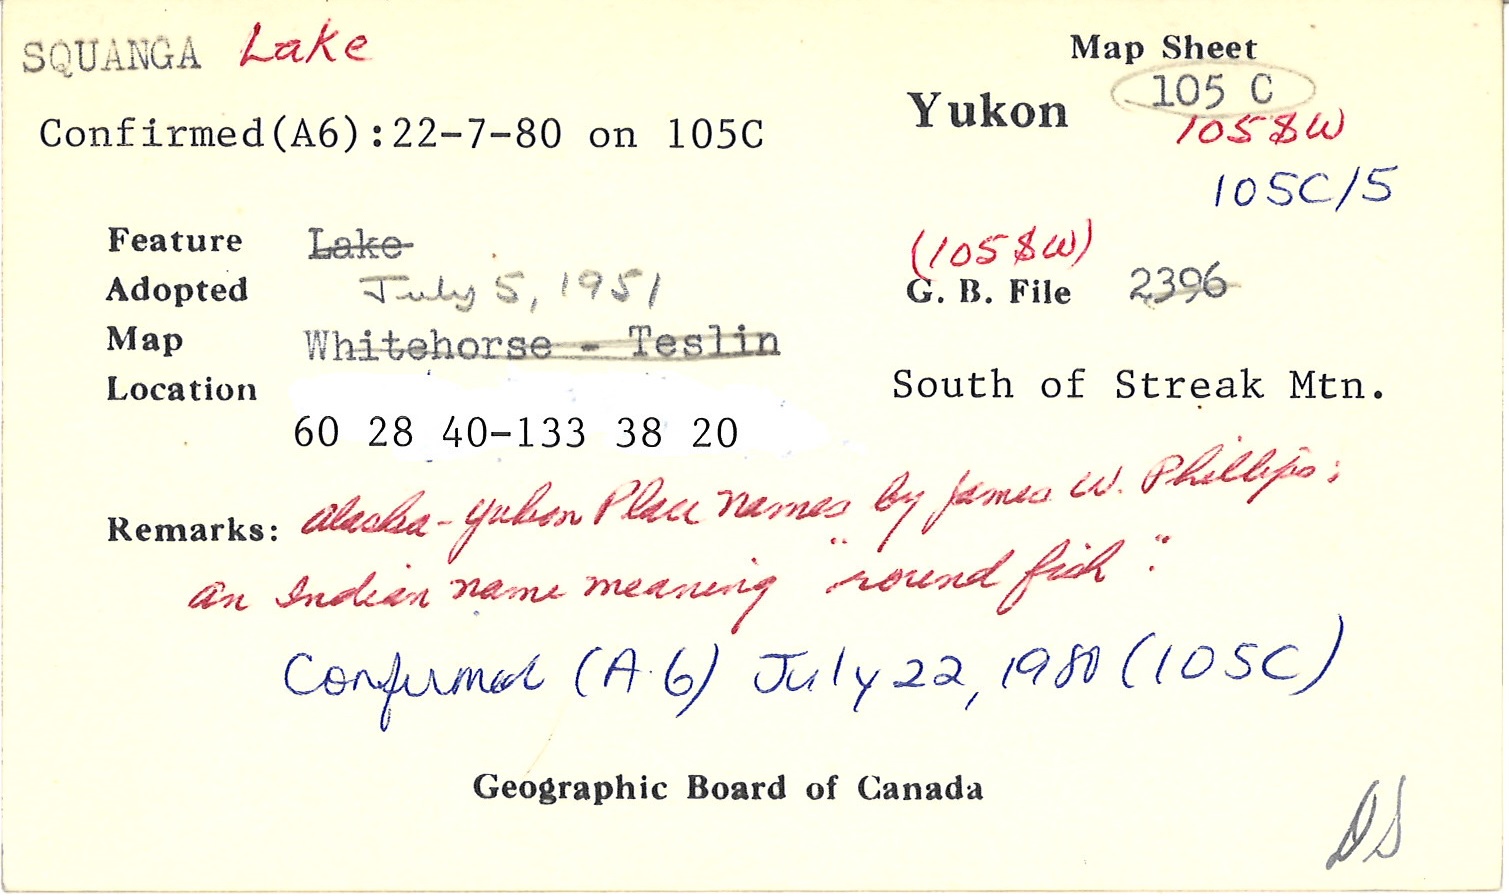 SQUANGA Lake
Map Sheet
Yukon 105 C
105 SW
Confirmed(A6):22-7-80 on 105C
105C/5
Feature Lake
(105 SW)
Adopted July 5, 1951
G. B. File 2396
Map Whitehorse - Teslin
Location
South of Streak Mtn.
60 28 40-133 38 20
Remarks: Alaska-Yukon Place Names by James W. Phillips:
an Indian name meaning "round fish".
Confirmed (A.6) July 22, 1980 (105C)
Geographic Board of Canada
DS